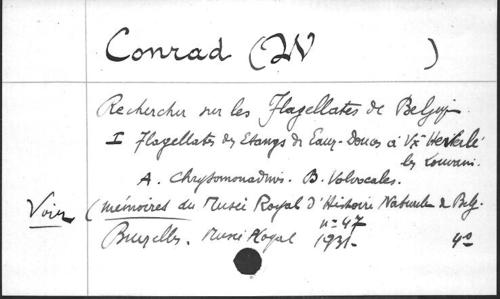 Conrad (W )
Recherches sur les Flagellates de Belgique
I Flagellates des Etangs de Eaux-Douces à Vx Héverlé
lez Louvain.
A. Chrysomonadinés. B. Volvocales.
Voir (mémoires du Musée Royal d'Histoire Naturelle de Belg.
n° 47
Bruxelles. Musée Royal 1931- 4°